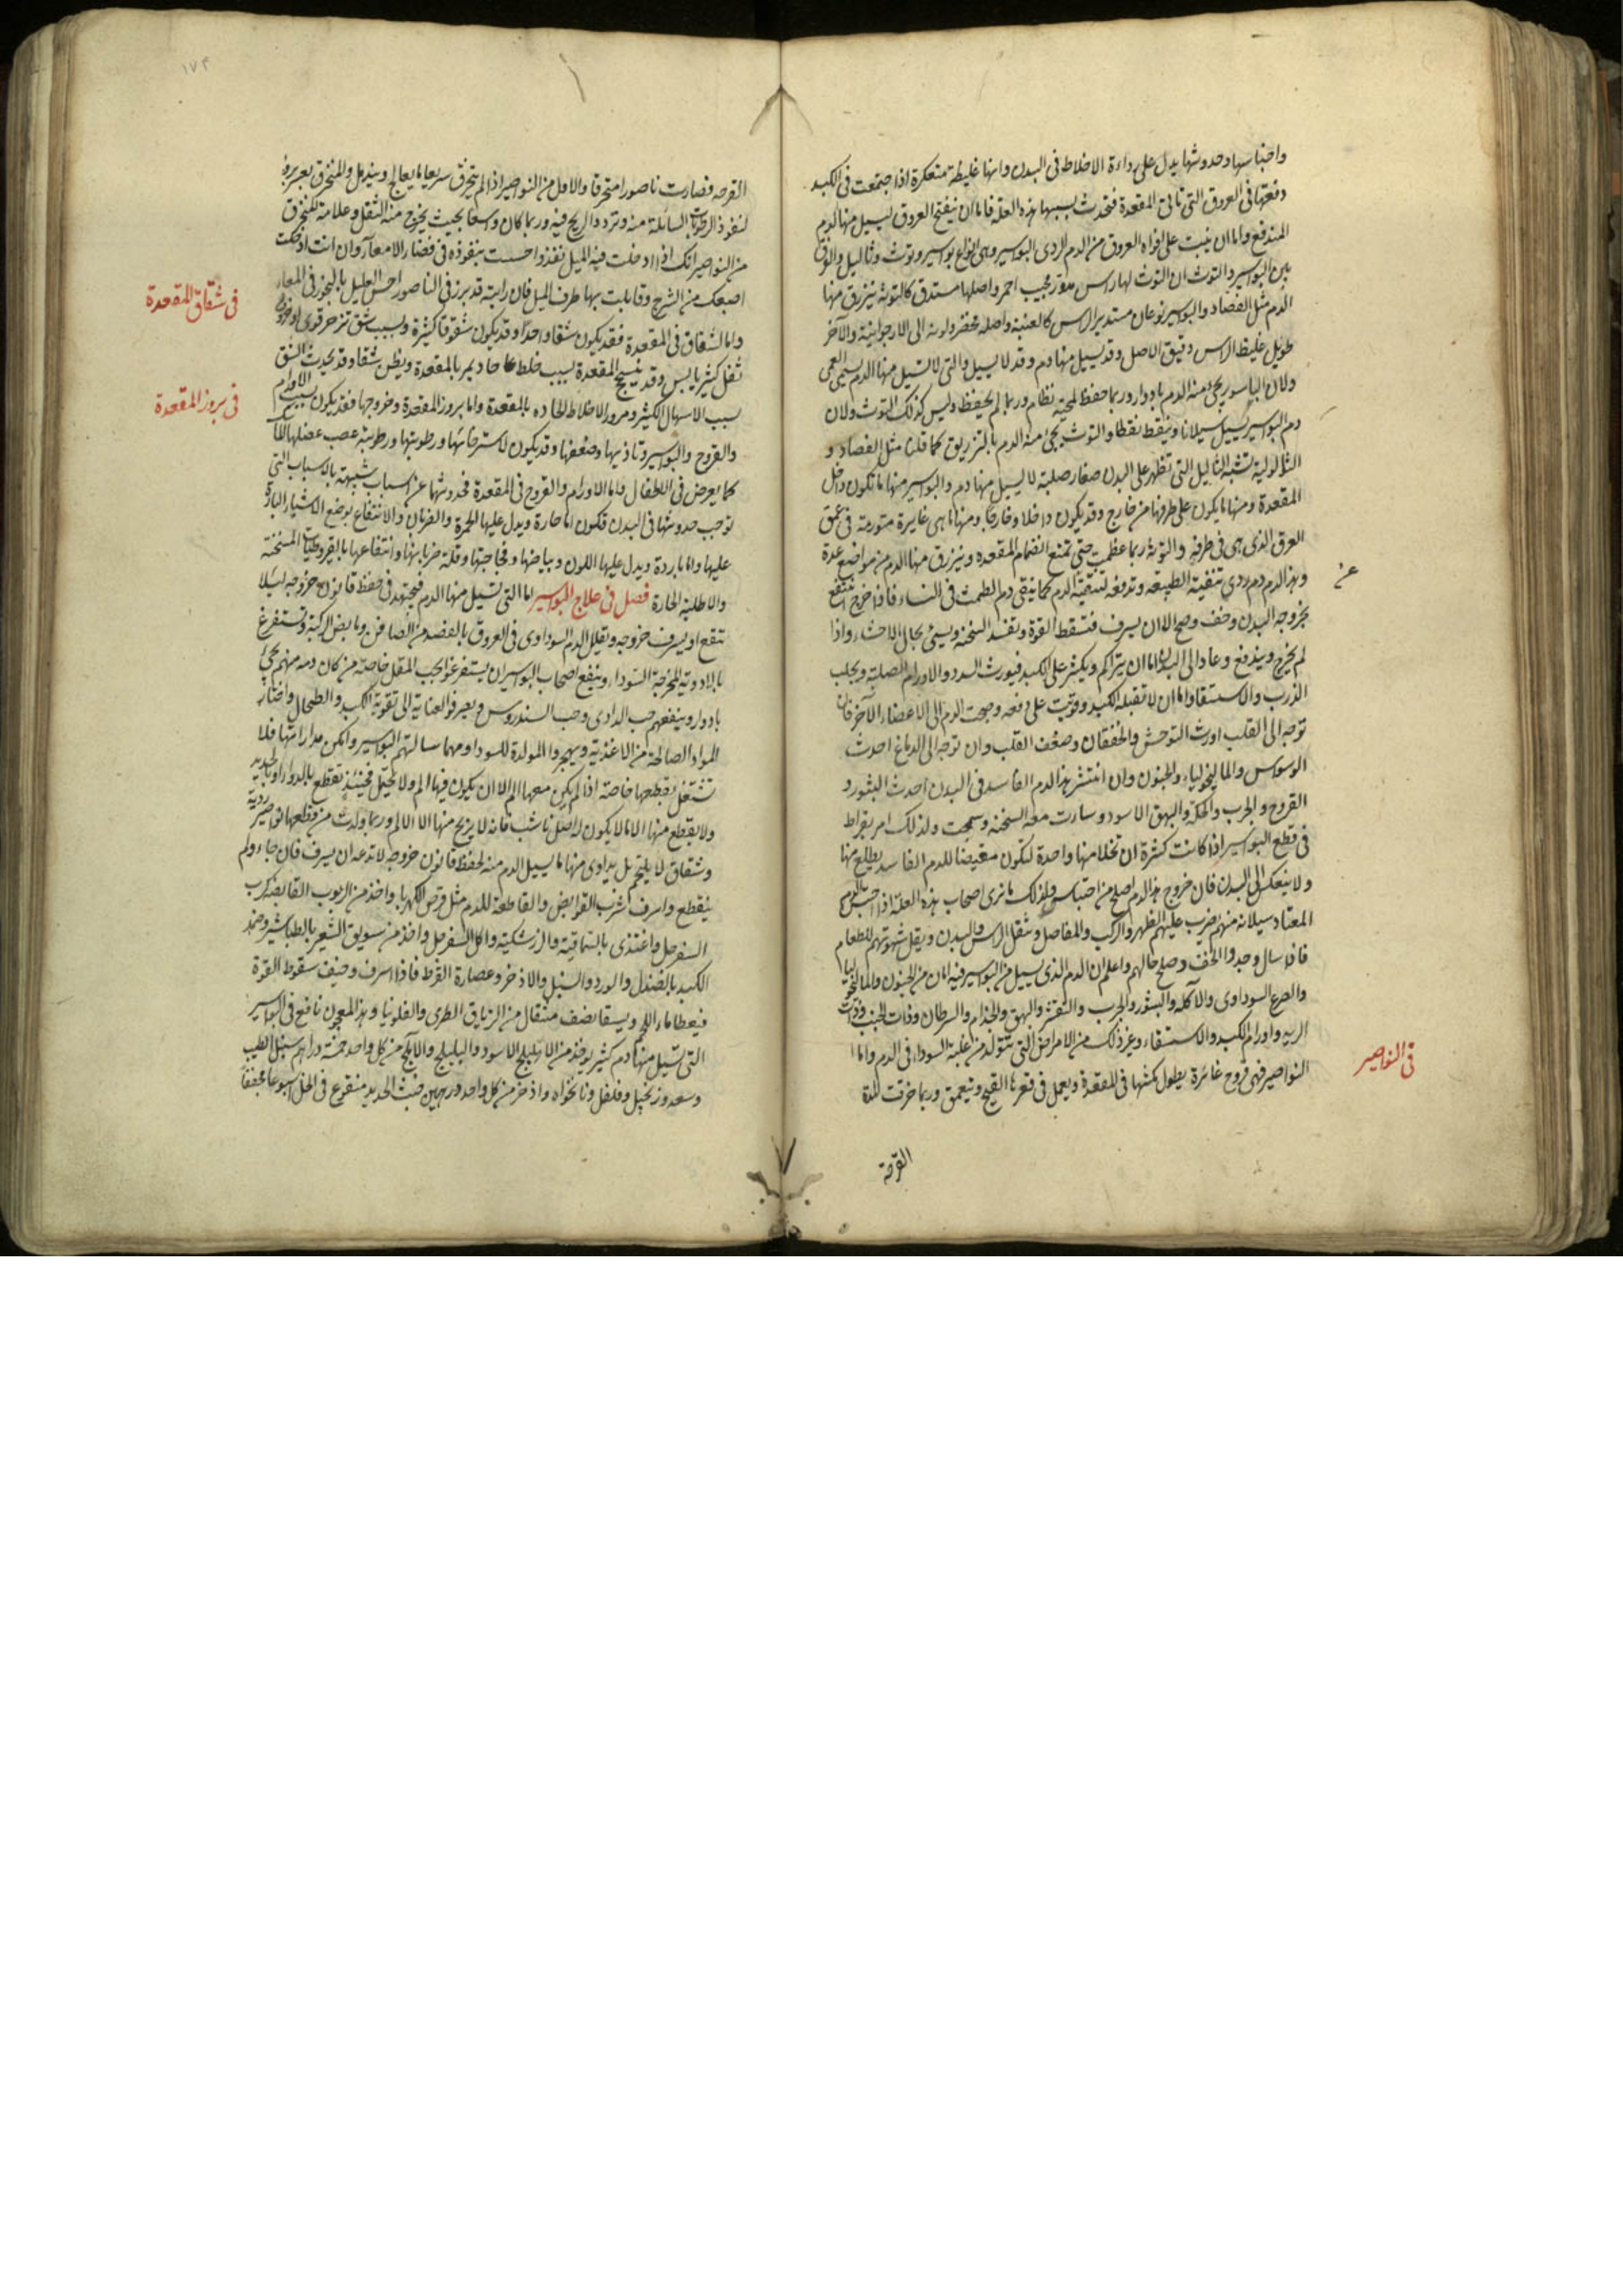 واحتباسها وحدوثها يدل على رداءة الاخلاط فى البدن وانها غليظة متعكرة اذا اجتمعت فى الكبد
دفعتها فى العروق التى تاتى المقعدة فتحدث بسببها هذه العلة فاما ان ينفتح العروق ليسيل منها الدم
المندفع واما ان ينبت على افواه العروق من الدم الردى البواسير وهى انواع بواسير وتوث وثاليل والفرق
بين البواسير والتوث ان التوث لها راس مدور محبب احمر واصلها مستدق كالتوثة ينزرق منها
الدم مثل الفصاد والبواسير نوعان مستدير الراس كالعنبة واصله مخضر ولونه الى الارجوانية والآخر
طويل غليظ الراس دقيق الاصل وقد يسيل منها دم وقد لا يسيل والتى لا تسيل منها الدم يسمى العمى
ولان الباسور يجئ منه الدم بادوار وربما حفظ لمجيه نظام وربما لم يحفظ وليس كذلك التوث ولان
دم البواسير يسيل سيلانا وينقط نقطا والتوث يجئ منه الدم بالتزريق كما قلنا مثل الفصاد و
الثالولية تشبه الثاليل التى تظهر على البدن صغار صلبة لا يسيل منها دم والبواسير منها ما تكون داخل
المقعدة ومنها ما يكون على طرفها من خارج وقد يكون داخلا وخارجا ومنها ما هى غايرة متورمة فى عمق
العرق الذى هى فى طرفه والتوثة ربما عظمت حتى تمنع انضمام المقعدة وينزرق منها الدم من مواضع عدة
وهذا الدم دم ردى تنفيه الطبيعة وتدفعه لتنقية الدم كما ينقى دم الطمث فى النساء فاذا خرج انتفع
بخروجه البدن وخف وصح الا ان يسرف فتسقط القوة وتفسد السخنة ويسئ بحال الاحشاء واذا
لم يخرج ويندفع وعاد الى البدن اما ان يتراكم ويكثر على الكبد فيورث السدد والاورام الصلبة ويجلب
الذرب والاستسقا واما ان لا تقبله الكبد وقويت على دفعه وجهت الدم الى الاعضاء الآخر فان
توجه الى القلب اورث التوحش والخفقان وضعف القلب وان توجه الى الدماغ احدث
الوسواس والماليخوليا والجنون وان انتشر هذا الدم الفاسد فى البدن احدث البثور و
القروح والجرب والحكة والبهق الاسود وسارت معه السخنة وسمجت ولذلك امر بقراط
فى قطع البواسير اذا كانت كثيرة ان تخلا منها واحدة لتكون مغيضا للدم الفاسد يطلع منها
ولا ينعكس الى البدن فان خروج هذا الدم اصلح من احتباسه ولذلك ما نرى اصحاب هذه العلة اذا احتبس الدم
المعتاد سيلانه منهم يضرب عليهم الظهر والركب والمفاصل وتثقل الراس والبدن ويقل شهوتهم للطعام
فاذا سال وجدوا الخف وصلح حالهم واعلم ان الدم الذى يسيل من البواسير فيه امان من الجنون والماليخوليا
والصرع السوداوى والآكلة والبثور والجرب والتقشر والبهق والجذام والسرطان وذات الجنب وذات
الريه واورام الكبد والاستسقاء وغير ذلك من الامراض التى تتولد من غلبة السوداء فى الدم واما
النواصير فهى قروح غائرة يطول مكثها فى المقعدة ويعمل فى قعرها القيح ويتعمق وربما خرقت للدة
القرحة
فى النواصير
١٧٤
القرحه فصارت ناصورا منخرقا والاول من النواصير اذا لم ينخرق سريعا ما يعالج ويندمل والمنخرق يعسر برؤه
لنفوذ الرطوبات السائلة منه وتردد الريح فيه وربما كان واسعا بحيث يخرج منه الثقل وعلامة المنخرق
من النواصير انك اذا ادخلت فيه الميل نفذ واحسست بنفوذه فى فضاء الامعاء وان انت ادخلت
اصبعك من الشرج وقابلت بها طرف الميل فان رايته قد برز فى الناصور احس العليل
واما الشقاق فى المقعدة فقد يكون شقا واحدا وقد يكون شقوقا كثيرة وبسبب شق تزحر قوى او خروج
ثفل كثير يابس وقد ينسحج المقعدة بسبب خلط حاد يمر بالمقعدة ويظن شقا وقد يحدث الشق
بسبب الاسهال الكثير ومرور الاخلاط الحاده بالمقعدة واما بروز المقعدة وخروجها فقد يكون بسبب الاورام
والقروح والبواسير وتاذيها وضعفها وقد يكون لاسترخائها ورطوبتها ورطوبة عصب عضلها
كما يعرض فى الاطفال واما الاورام والقروح فى المقعدة فحدوثهما عن اسباب شبيهة بالاسباب التى
توجب حدوثها فى البدن فتكون اما حارة ويدل عليها الحمرة والضربان والانتفاع بوضع الاشياء الباردة
عليها واما باردة ويدل عليها اللون وبياضها وفجاجتها وقلة ضربانها وانتفاعها بالقيروطيات المسخنة
والاطلية الحارة فصل فى علاج البواسير اما التى تسيل منها الدم فيجتهد فى حفظ قانون خروجه لئلا
تنقع او يسرف خروجه وتقليل الدم السوداوى فى العروق بالفصد من الصافن ومابض الركبة وتستفرغ
بالادوية المخرجة السوداء وينفع اصحاب البواسير ان يستفرغوا بحب المقل خاصة من كان دمه منهم يجئ
بادوار وينفعهم حب الدادى وحب السندروس ويصرفوا العناية الى تقوية الكبد والطحال واختيار
المواد الصالحة من الاغذية ويهجروا المولدة للسودا ومهما سالتهم البواسير وامكن مداراتها فلا
تشتغل بقطعها خاصة اذا لم يكن معها الم الا ان يكون فيها الم ولا تحتمل فحينئذ تقطع بالدواء او بالحديد
ولا يقطع منها الا ما لا يكون له اصل ناشب فانه لا يريح منها الا الالم وربما ولدت من قطعها نواصير ردية
وشقاق لا يلتحم بل يداوى منها ما يسيل الدم منه لحفظ قانون خروجه لا تدعه ان يسرف فان جاء ولم
ينقطع واسرف اشرب القوابض والقاطعة للدم مثل قرص الكهربا واخذ من الربوب القابضة كرب
السفرجل واغتذى بالسماقية والزرشكية واكل السفرجل واخذ من سويق الشعير بالطباشير وضمد
الكبد بالصندل والورد والسنبل والاذخر وعصارة القرظ فاذا اسرف وخيف سقوط القوة
فيعطا ماء اللحم ويسقا نصف مثقال من الترياق الطرى والفلونيا وهذا المعجون نافع فى البواسير
التى تسيل منها دم كثير يوخذ من الاهليلج الاسود والبليلج والآملج من كل واحد خمسة دراهم سنبل الطيب
وسعد وزنجبيل وفلفل ونانخواه واذخر من كل واحد درهمين خبث الحديد منقوع فى الخل اسبوعا مجففا
فى شقاق المقعدة
فى بروز المقعدة